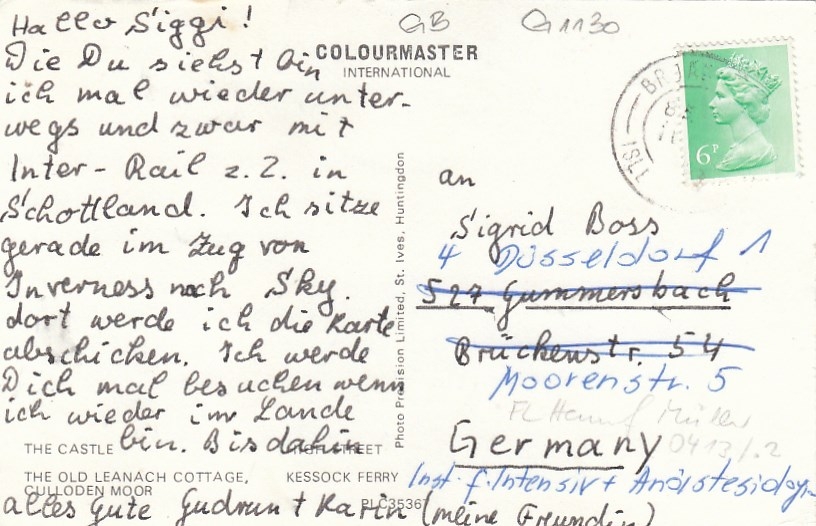 Hallo Siggi!
Die Du siehst bin
ich mal wieder unter-
wegs und zwar mit
Inter-Rail z.Z. in
Schottland. Ich sitze
gerade im Zug von
Inverness nach Sky.
dort werde ich die Karte
abschicken. Ich werde
Dich mal besuchen wenn
ich wieder im Lande
bin. Bis dahin
alles Gute Gudrun + Karin (meine Freundin)
GB G1130
COLOURMASTER
INTERNATIONAL
6P
an
Sigrid Boss
4 Düsseldorf 1
527 Gummersbach
Brückenstr. 54
Moorenstr. 5
Müller
Germany
Inst. f. Intensiv +
Photo Precision Limited, St. Ives, Huntingdon
THE CASTLE
STREET
THE OLD LEANACH COTTAGE,
CULLODEN MOOR
KESSOCK FERRY
PLC3536